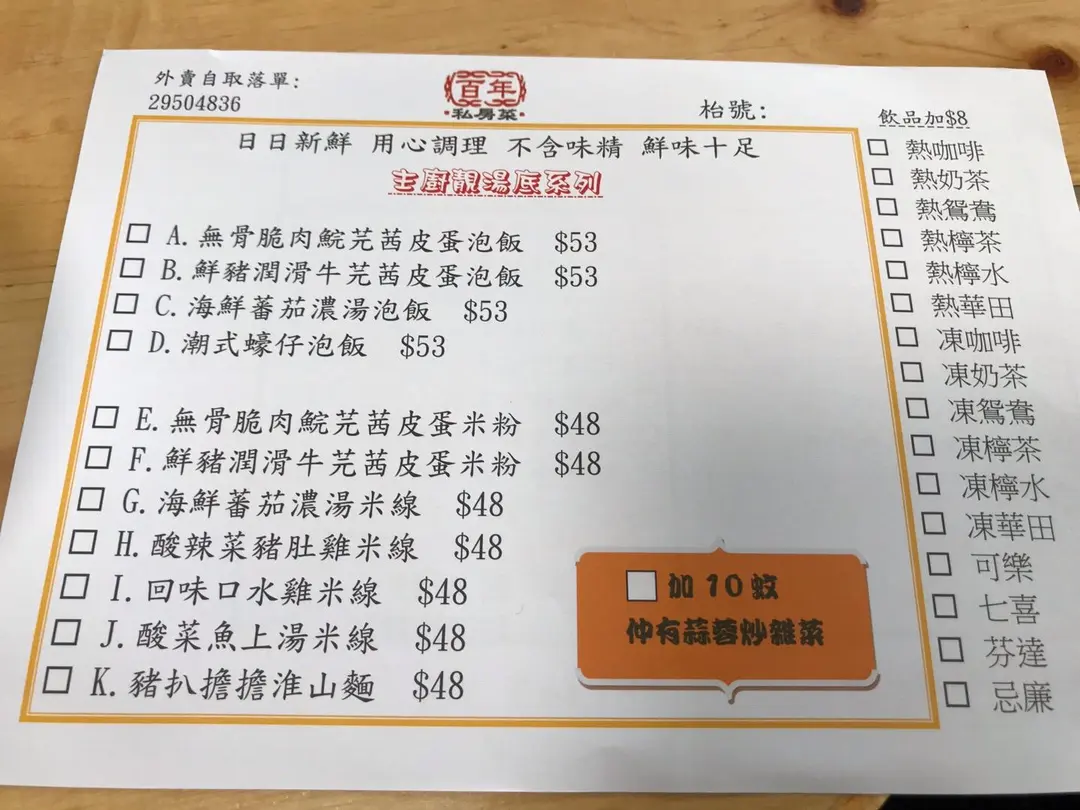 外賣自取落單:
29504836
百年
私房菜
枱號:
日日新鮮 用心調理 不含味精 鮮味十足
主廚靚湯底系列
A. 無骨脆肉鯇芫茜皮蛋泡飯 $53
B. 鮮豬潤滑牛芫茜皮蛋泡飯 $53
C. 海鮮蕃茄濃湯泡飯 $53
D. 潮式蠔仔泡飯 $53
E. 無骨脆肉鯇芫茜皮蛋米粉 $48
F. 鮮豬潤滑牛芫茜皮蛋米粉 $48
G. 海鮮蕃茄濃湯米線 $48
H. 酸辣菜豬肚雞米線 $48
I. 回味口水雞米線 $48
J. 酸菜魚上湯米線 $48
K. 豬扒擔擔淮山麵 $48
加 10 蚊
仲有蒜蓉炒雜菜
飲品加$8
熱咖啡
熱奶茶
熱鴛鴦
熱檸茶
熱檸水
熱華田
凍咖啡
凍奶茶
凍鴛鴦
凍檸茶
凍檸水
凍華田
可樂
七喜
芬達
忌廉